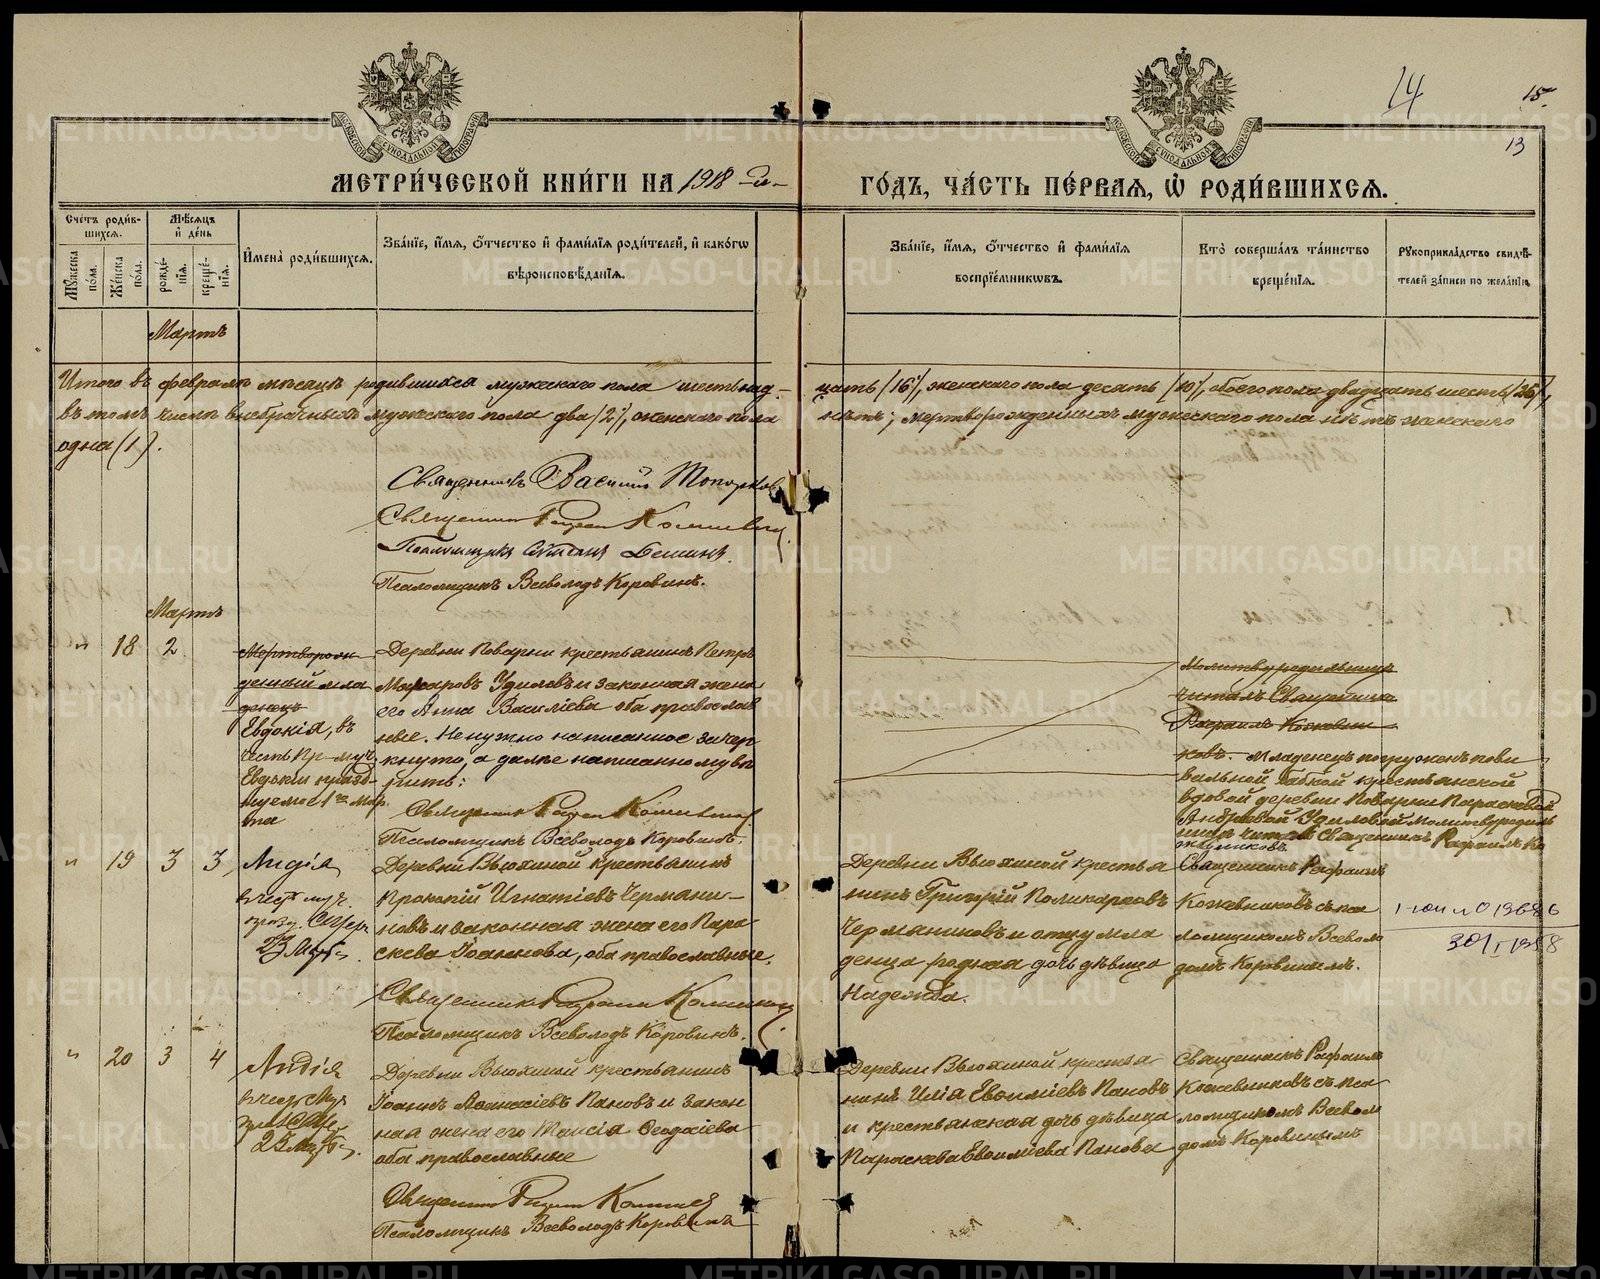 14
15.
13
МОСКОВСКОЙ СѴНОДАЛЬНОЙ ТИПОГРАФІИ
МОСКОВСКОЙ СѴНОДАЛЬНОЙ ТИПОГРАФІИ
МЕТРИ́ЧЕСКОЙ КНИ́ГИ НА 1918 -й-
ГО́ДЪ, ЧА́СТЬ ПЕ́РВАЯ, Ѡ҆ РОДИ́ВШИХСЯ.
Сче́тъ роди́в-
шихся.
Мѣ́сяцъ
и҆ де́нь
Мꙋ́жеска по́ла.
Же́нска по́ла.
рожде́-
нїя.
креще́-
нїя.
И҆мена̀ роди́вшихся.
Зва́нїе, и҆́мя, ѻ҆́тчество и҆ фами́лїя роди́телей, и҆ како́гѡ
вѣроисповѣ́данїя.
Зва́нїе, и҆́мя, ѻ҆́тчество и҆ фами́лїя
воспрїе́мникѡвъ.
Кто̀ соверша́лъ та́инство
креще́нїя.
Рꙋкоприкла́дство свидѣ́-
телей за́писи по жела́нїю
Мартъ
Итого въ февралѣ мѣсяцѣ родившихся мужескаго пола шестьнад-
цать /16/, женскаго пола десять /10/, обоего пола двадцать шесть /26/,
въ томъ числѣ внебрачныхъ мужескаго пола два /2/, женскаго пола
нѣтъ; мертворожденныхъ мужескаго пола нѣтъ женскаго
одна (1).
Священникъ Василій Топорков
Священникъ Рафаил
Псаломщикъ
Псаломщикъ Всеволодъ Коровинъ.
Мартъ
" 18 2
Мертворож-
денный мла
денецъ
Евдокія, въ
честь Пр-муч.
Евдокіи праздн-
уемое 1го Мар
та
Деревни Поварни крестьянинъ Петръ
Макаровъ Удиловъ и законная жена
его Анна Васильева оба православ
ные. Ненужно написанное зачер
кнуто, а далѣе написанному вѣ
рить:
Священникъ Рафаил
Псаломщикъ Всеволодъ Коровинъ.
Молитву родильницѣ
читалъ Священникъ
Рафаилъ Кожевни
ковъ. Младенецъ погруженъ пови
вальной бабкой крестьянской
вдовой деревни Поварни Параскевой
Андреевой Удиловой Молитву родиль
ницѣ читалъ Священникъ Рафаилъ Ко
жевниковъ.
" 19 3 3
Лидія
въ честь муч.
23 Мар
Деревни Вьюхиной крестьянинъ
Прокопій Игнатіевъ Чермани-
новъ и законная жена его Пара-
скева Іоаннова, оба православные.
Священникъ Рафаил
Псаломщикъ Всеволодъ Коровинъ.
Деревни Вьюхиной крестья
нинъ Григорій Поликарповъ
Черманиновъ и отцу мла
денца родная дочь дѣвица
Надежда.
Священникъ Рафаилъ
Кожевниковъ съ пса
ломщикомъ Всеволо
домъ Коровинымъ.
" 20 3 4
Лидія
въ честь Муч
Деревни Вьюхиной крестьянинъ
Іоаннъ Аѳанасіевъ Пановъ и закон
ная жена его Таисія Ѳеодосіева
оба православные
Священникъ Рафаил
Псаломщикъ Всеволодъ Коровинъ
Деревни Вьюхиной крестья
нинъ Илія Евѳиміевъ Пановъ
и крестьянская дочь дѣвица
Параскева Евѳиміева Панова
Священникъ Рафаилъ
Кожевниковъ съ пса-
ломщикомъ Всевол
домъ Коровинымъ
METRIKI.GASO-URAL.RU